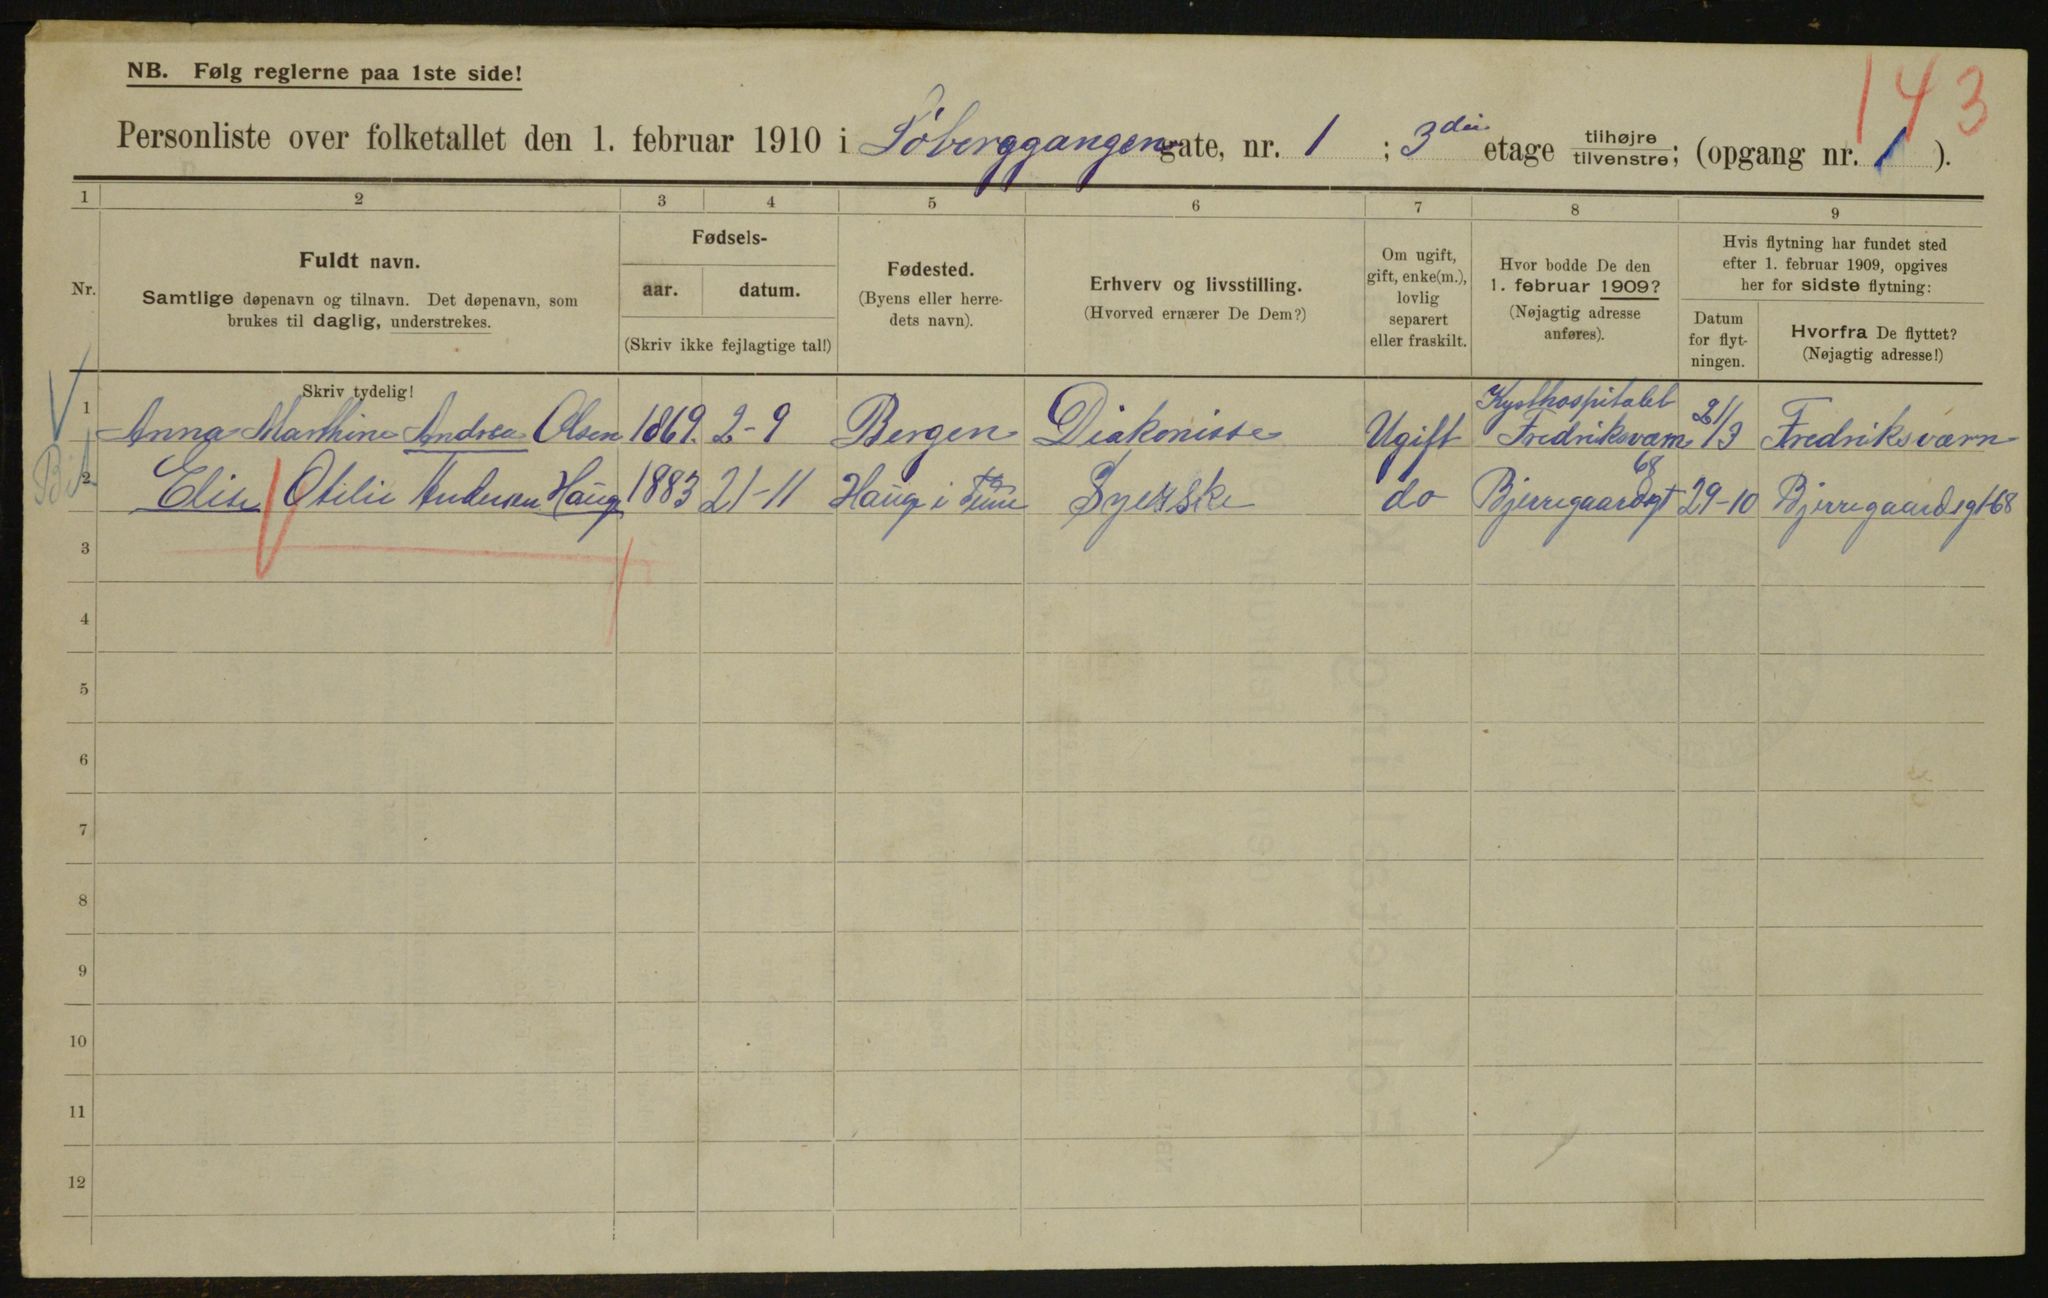 NB. Følg reglerne paa 1ste side!
143
Personliste over folketallet den 1. februar 1910 i Søberggangen gate, nr. 1 ; 3die etage tilhøjre tilvenstre; (opgang nr. 1 ).
1 2 3 4 5 6 7 8 9
Nr.
Fuldt navn.
Samtlige døpenavn og tilnavn. Det døpenavn, som
brukes til daglig, understrekes.
Fødsels-
aar. datum.
(Skriv ikke fejlagtige tal!)
Fødested.
(Byens eller herre-
dets navn).
Erhverv og livsstilling.
(Hvorved ernærer De Dem?)
Om ugift,
gift, enke(m.),
lovlig
separert
eller fraskilt.
Hvor bodde De den
1. februar 1909?
(Nøjagtig adresse
anføres).
Hvis flytning har fundet sted
efter 1. februar 1909, opgives
her for sidste flytning:
Datum
for flyt-
ningen.
Hvorfra De flyttet?
(Nøjagtig adresse!)
Skriv tydelig!
1 Anna Marthine Andrea Olsen 1869. 2-9 Bergen Diakonisse Ugift Kysthospitalet Fredriksværn 21/3 Fredriksværn
2 Elise Otilie Andersen Haug 1883 21-11 Haug i Tune Syerske do Bjerregaardsgt 68 29-10 Bjerregaardsgt 68
3
4
5
6
7
8
9
10
11
12